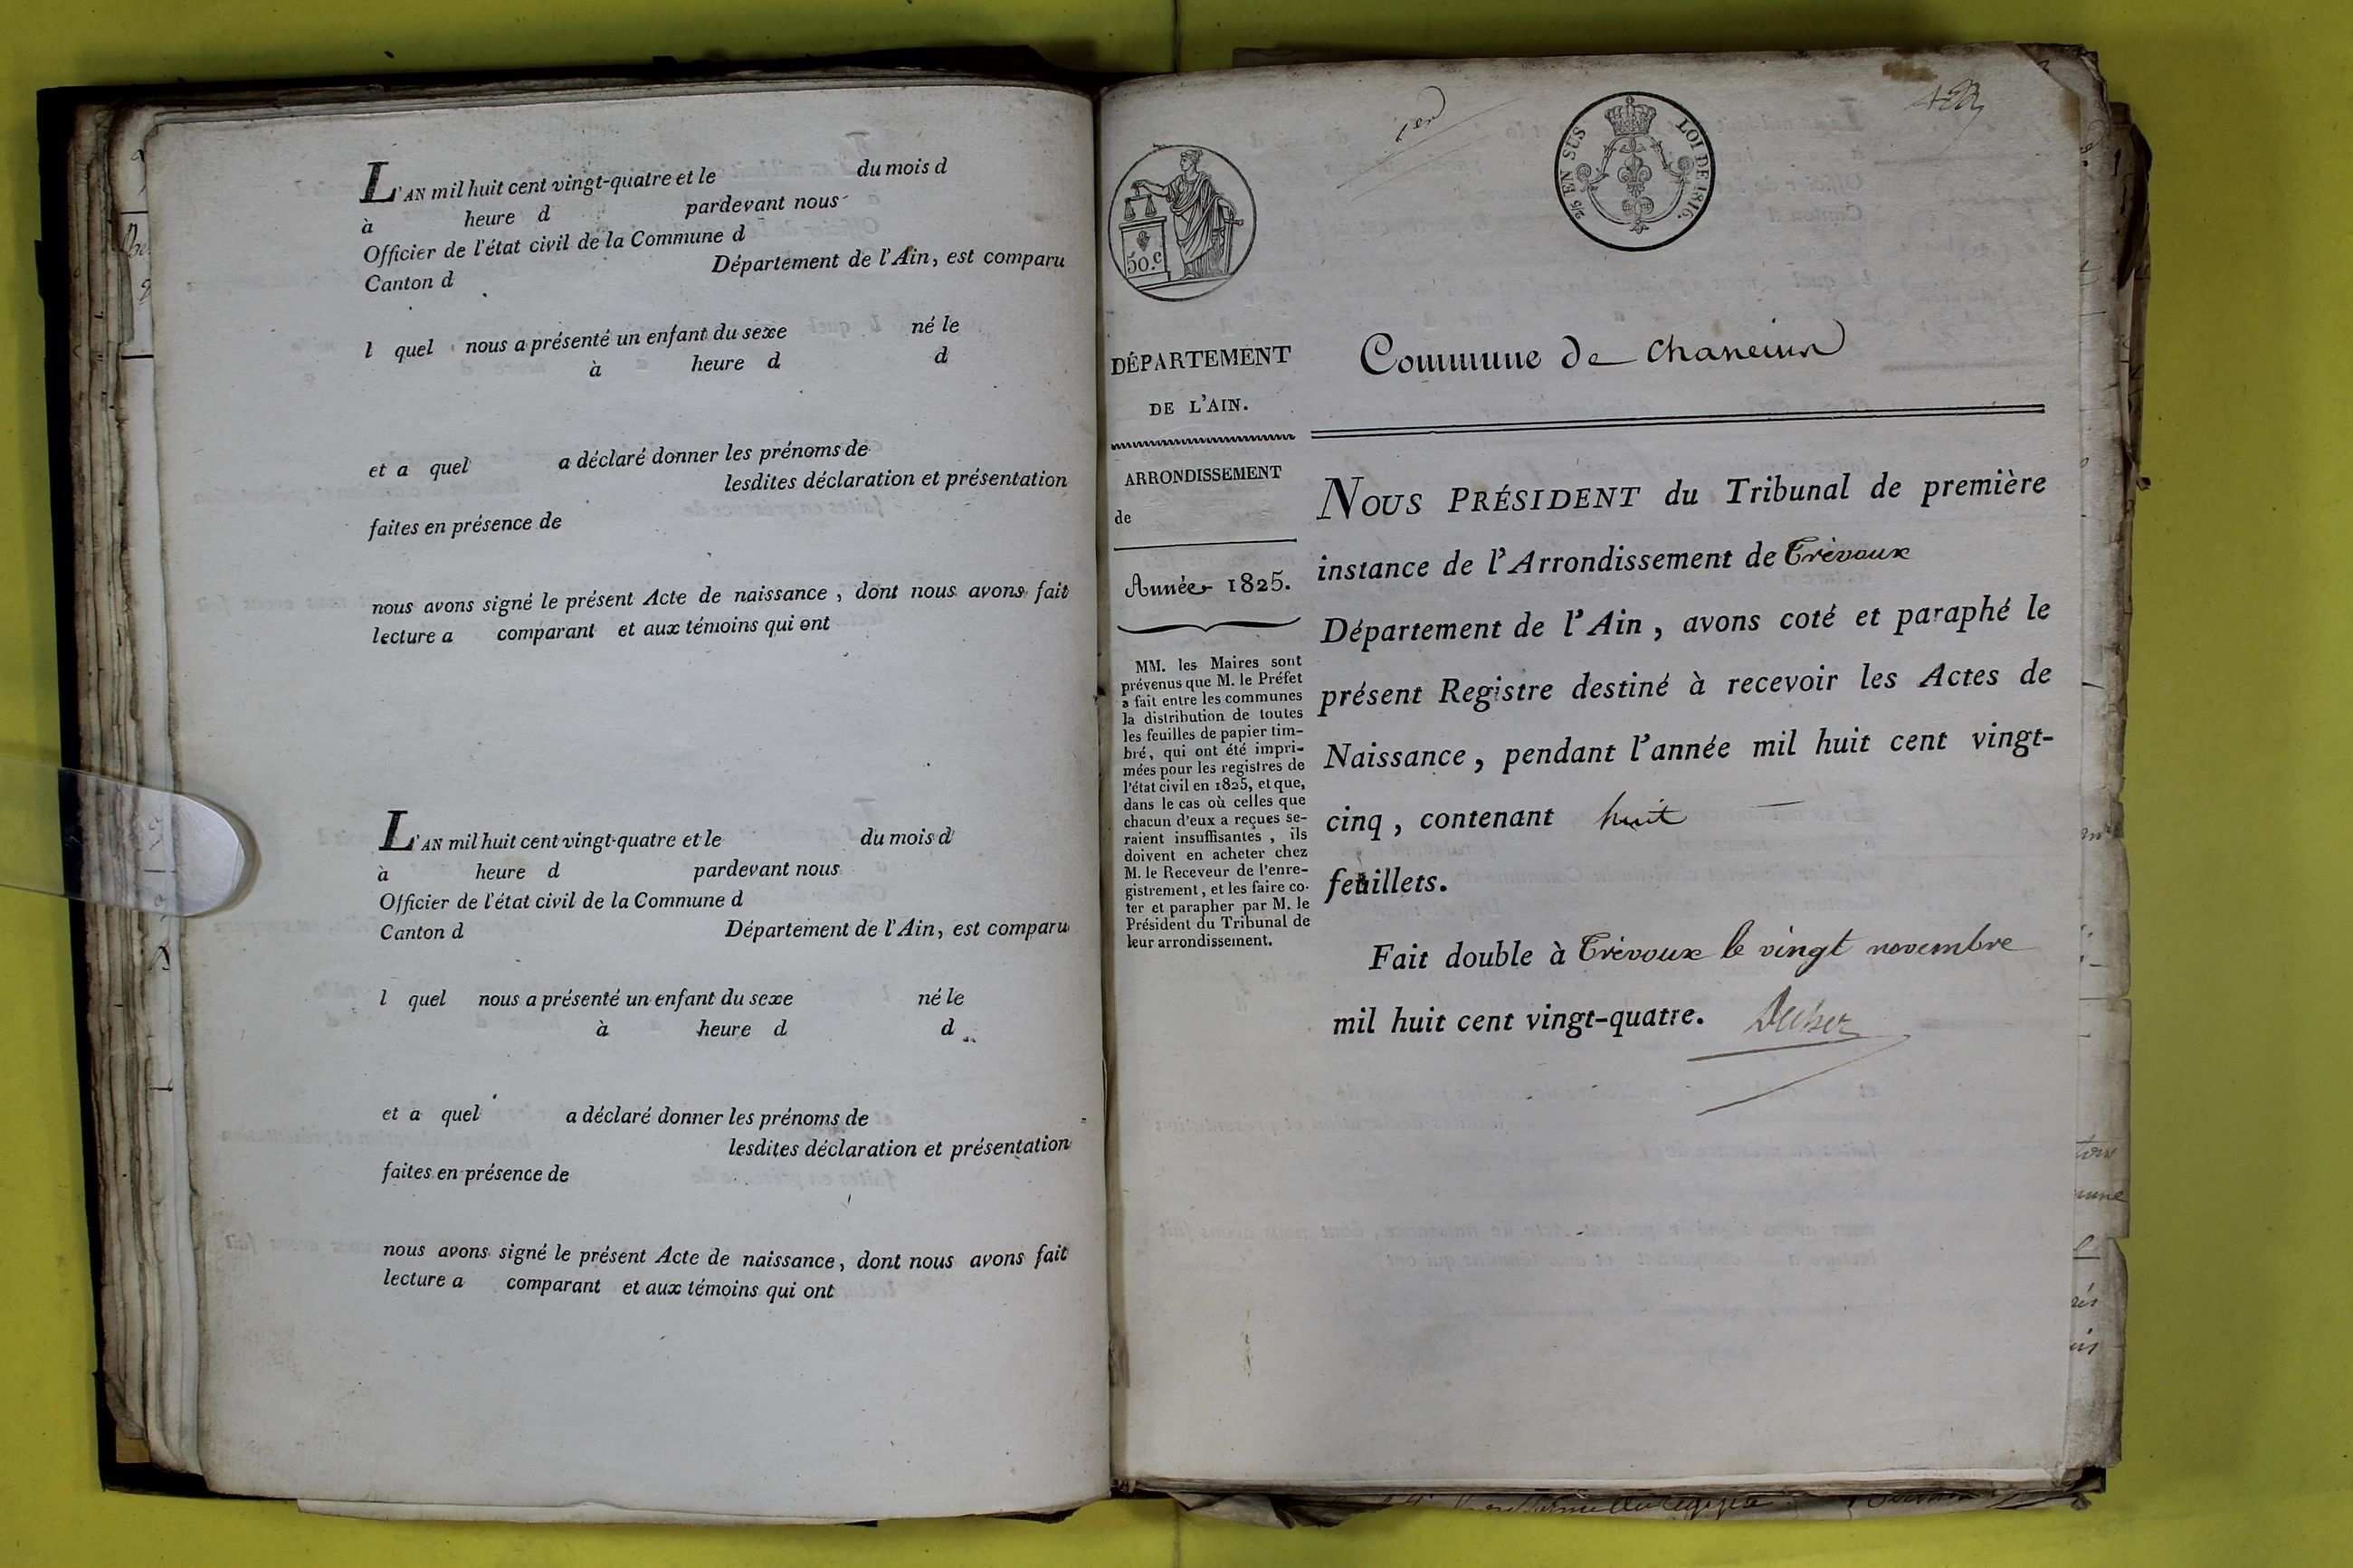 L'AN mil huit cent vingt-quatre et le du mois d
à heure d pardevant nous
Officier de l'état civil de la Commune d
Canton d Département de l'Ain, est comparu
l quel nous a présenté un enfant du sexe né le
à heure d d
et a quel a déclaré donner les prénoms de
lesdites déclaration et présentation
faites en présence de
nous avons signé le présent Acte de naissance, dont nous avons fait
lecture a comparant et aux témoins qui ont
L'AN mil huit cent vingt-quatre et le du mois d
à heure d pardevant nous
Officier de l'état civil de la Commune d
Canton d Département de l'Ain, est comparu
l quel nous a présenté un enfant du sexe né le
à heure d d
et a quel a déclaré donner les prénoms de
lesdites déclaration et présentation
faites en présence de
nous avons signé le présent Acte de naissance, dont nous avons fait
lecture a comparant et aux témoins qui ont
1er
50.c
2/5 EN SUS LOI DE 1816.
DÉPARTEMENT
DE L'AIN.
ARRONDISSEMENT
de
Année 1825.
MM. les Maires sont
prévenus que M. le Préfet
a fait entre les communes
la distribution de toutes
les feuilles de papier tim-
bré, qui ont été impri-
mées pour les registres de
l'état civil en 1825, et que,
dans le cas où celles que
chacun d'eux a reçues se-
raient insuffisantes, ils
doivent en acheter chez
M. le Receveur de l'enre-
gistrement, et les faire co-
ter et parapher par M. le
Président du Tribunal de
leur arrondissement.
Commune de Chaneins
NOUS PRÉSIDENT du Tribunal de première
instance de l'Arrondissement de Trévoux
Département de l'Ain, avons coté et paraphé le
présent Registre destiné à recevoir les Actes de
Naissance, pendant l'année mil huit cent vingt-
cinq, contenant huit
feuillets.
Fait double à Trévoux le vingt novembre
mil huit cent vingt-quatre.